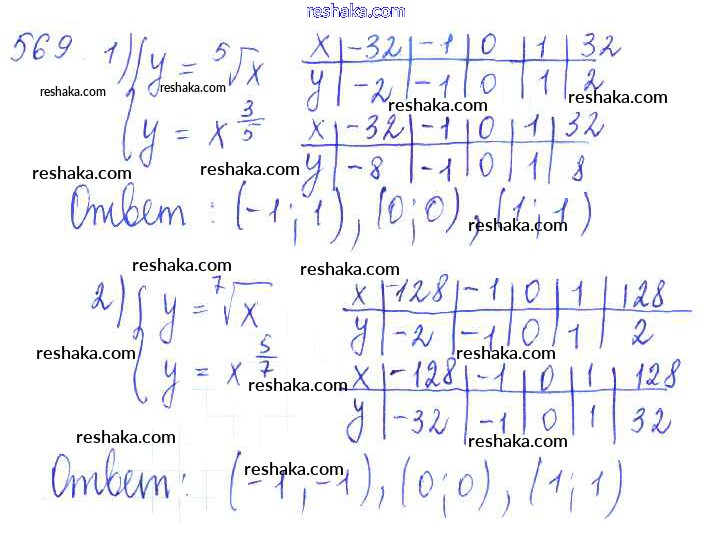 reshaka.com
569 1) { y = ⁵√x   x | -32 | -1 | 0 | 1 | 32
reshaka.com reshaka.com y | -2 | -1 | 0 | 1 | 2 reshaka.com reshaka.com
{ y = x^(3/5)   x | -32 | -1 | 0 | 1 | 32
reshaka.com reshaka.com y | -8 | -1 | 0 | 1 | 8
Ответ : (-1; 1), (0; 0), (1; 1)
reshaka.com
reshaka.com reshaka.com
2) { y = ⁷√x   x | -128 | -1 | 0 | 1 | 128
y | -2 | -1 | 0 | 1 | 2
reshaka.com reshaka.com
{ y = x^(5/7)   x | -128 | -1 | 0 | 1 | 128
reshaka.com reshaka.com
y | -32 | -1 | 0 | 1 | 32
reshaka.com reshaka.com
Ответ : (-1, -1), (0; 0), (1; 1)
reshaka.com reshaka.com